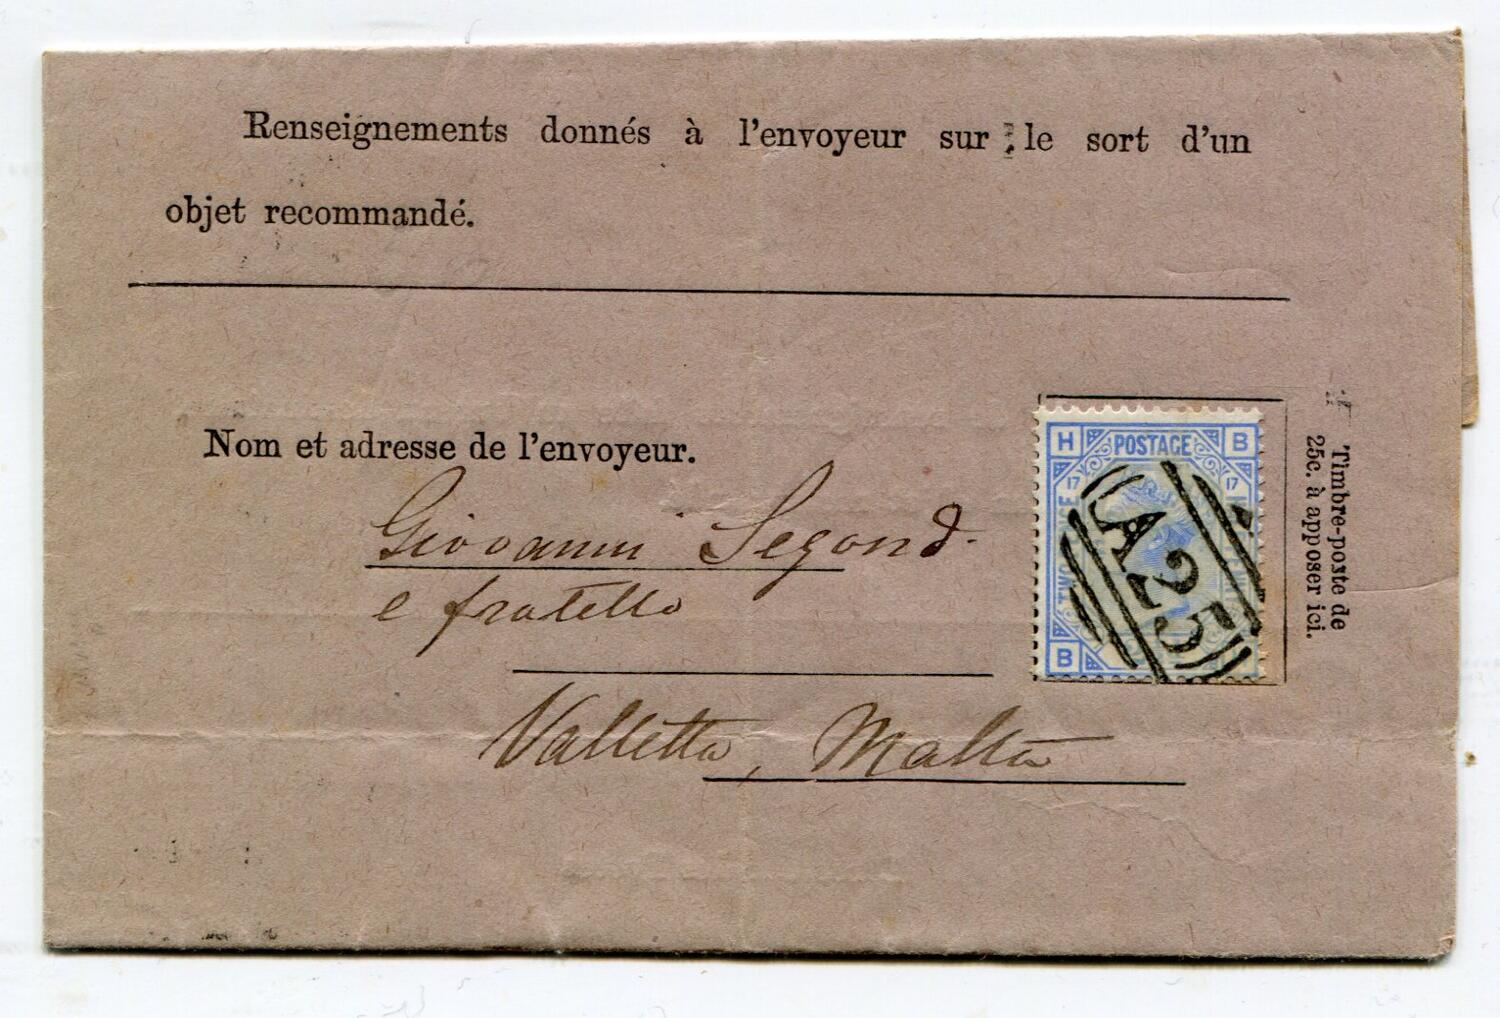 Renseignements donnés à l'envoyeur sur le sort d'un
objet recommandé.
Nom et adresse de l'envoyeur.
Giovanni Segond
e fratello
Valletta, Malta
H POSTAGE B
17 17
TWO
B
A25
Timbre-poste de
25c. à apposer ici.